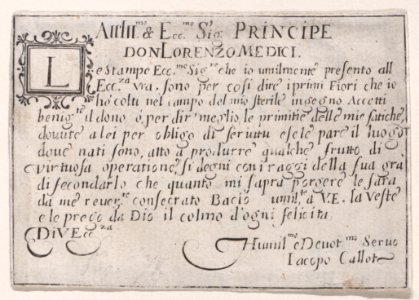 All Ill.mo & Ecc.mo Sig. PRINCIPE
DON LORENZO MEDICI.
Le Stampe Ecc.mo Sig.re che io umilmente presento all
Ecc.za Vra. sono per cosi dire i primi Fiori che io
hò colti nel campo del mio sterile ingegno Accetti
benig.te il dono ò, per dir meglio, le primitie delle mie fatiche,
douute a lei per obligo di seruitu e se le pare il luogo
doue nati sono, atto a produrre qualche frutto di
virtuosa operatione, si degni con i raggi della sua gra
di secondarlo che quanto mi saprà porgere le sarà
da me reuer.te consecrato Bacio umil.te a V.E. la Veste
e le prego da Dio il colmo d'ogni felicita.
Di V. Ecc.za
Humil.mo e Deuot.mo Seruo
Iacopo Callot